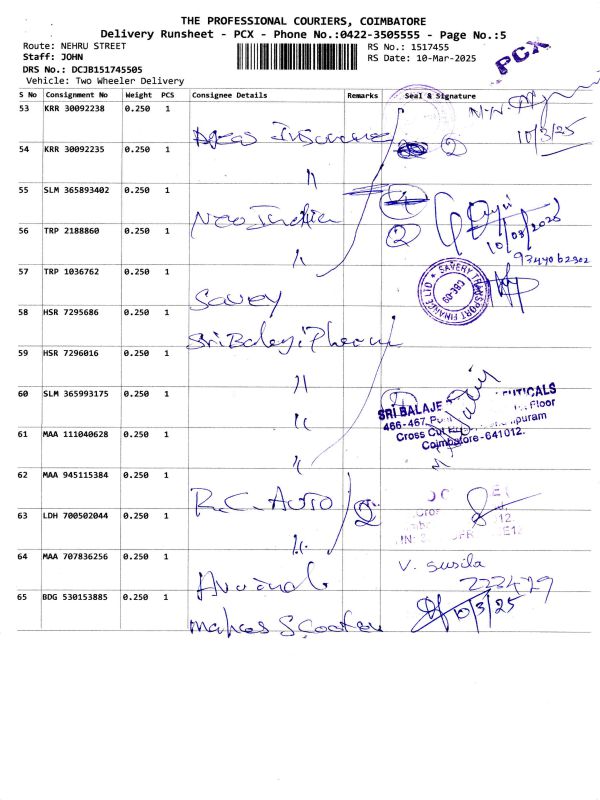 THE PROFESSIONAL COURIERS, COIMBATORE
Delivery Runsheet - PCX - Phone No.:0422-3505555 - Page No.:5
Route: NEHRU STREET
Staff: JOHN
DRS No.: DCJB151745505
Vehicle: Two Wheeler Delivery
RS No.: 1517455
RS Date: 10-Mar-2025
PCX
S No Consignment No Weight PCS Consignee Details Remarks Seal & Signature
53 KRR 30092238 0.250 1
10/3/25
54 KRR 30092235 0.250 1 〃 2
55 SLM 365893402 0.250 1 New India
56 TRP 2188860 0.250 1 〃 2
57 TRP 1036762 0.250 1
SAVERY TRANSPORT FINANCE LTD
CBE-09
58 HSR 7295686 0.250 1 Sri Balaji Pharm
59 HSR 7296016 0.250 1 〃
60 SLM 365993175 0.250 1 〃
SRI BALAJE
466-467, Floor
Cross Cut puram
Coimbatore-641012.
61 MAA 111040628 0.250 1 〃
62 MAA 945115384 0.250 1 R.C. Auto 2
63 LDH 700502044 0.250 1 〃
64 MAA 707836256 0.250 1 Aravind
V. Susila
222479
65 BDG 530153885 0.250 1
10/3/25